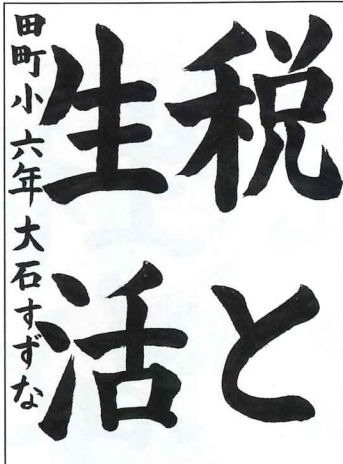 税と
生活
田町小六年大石すずな